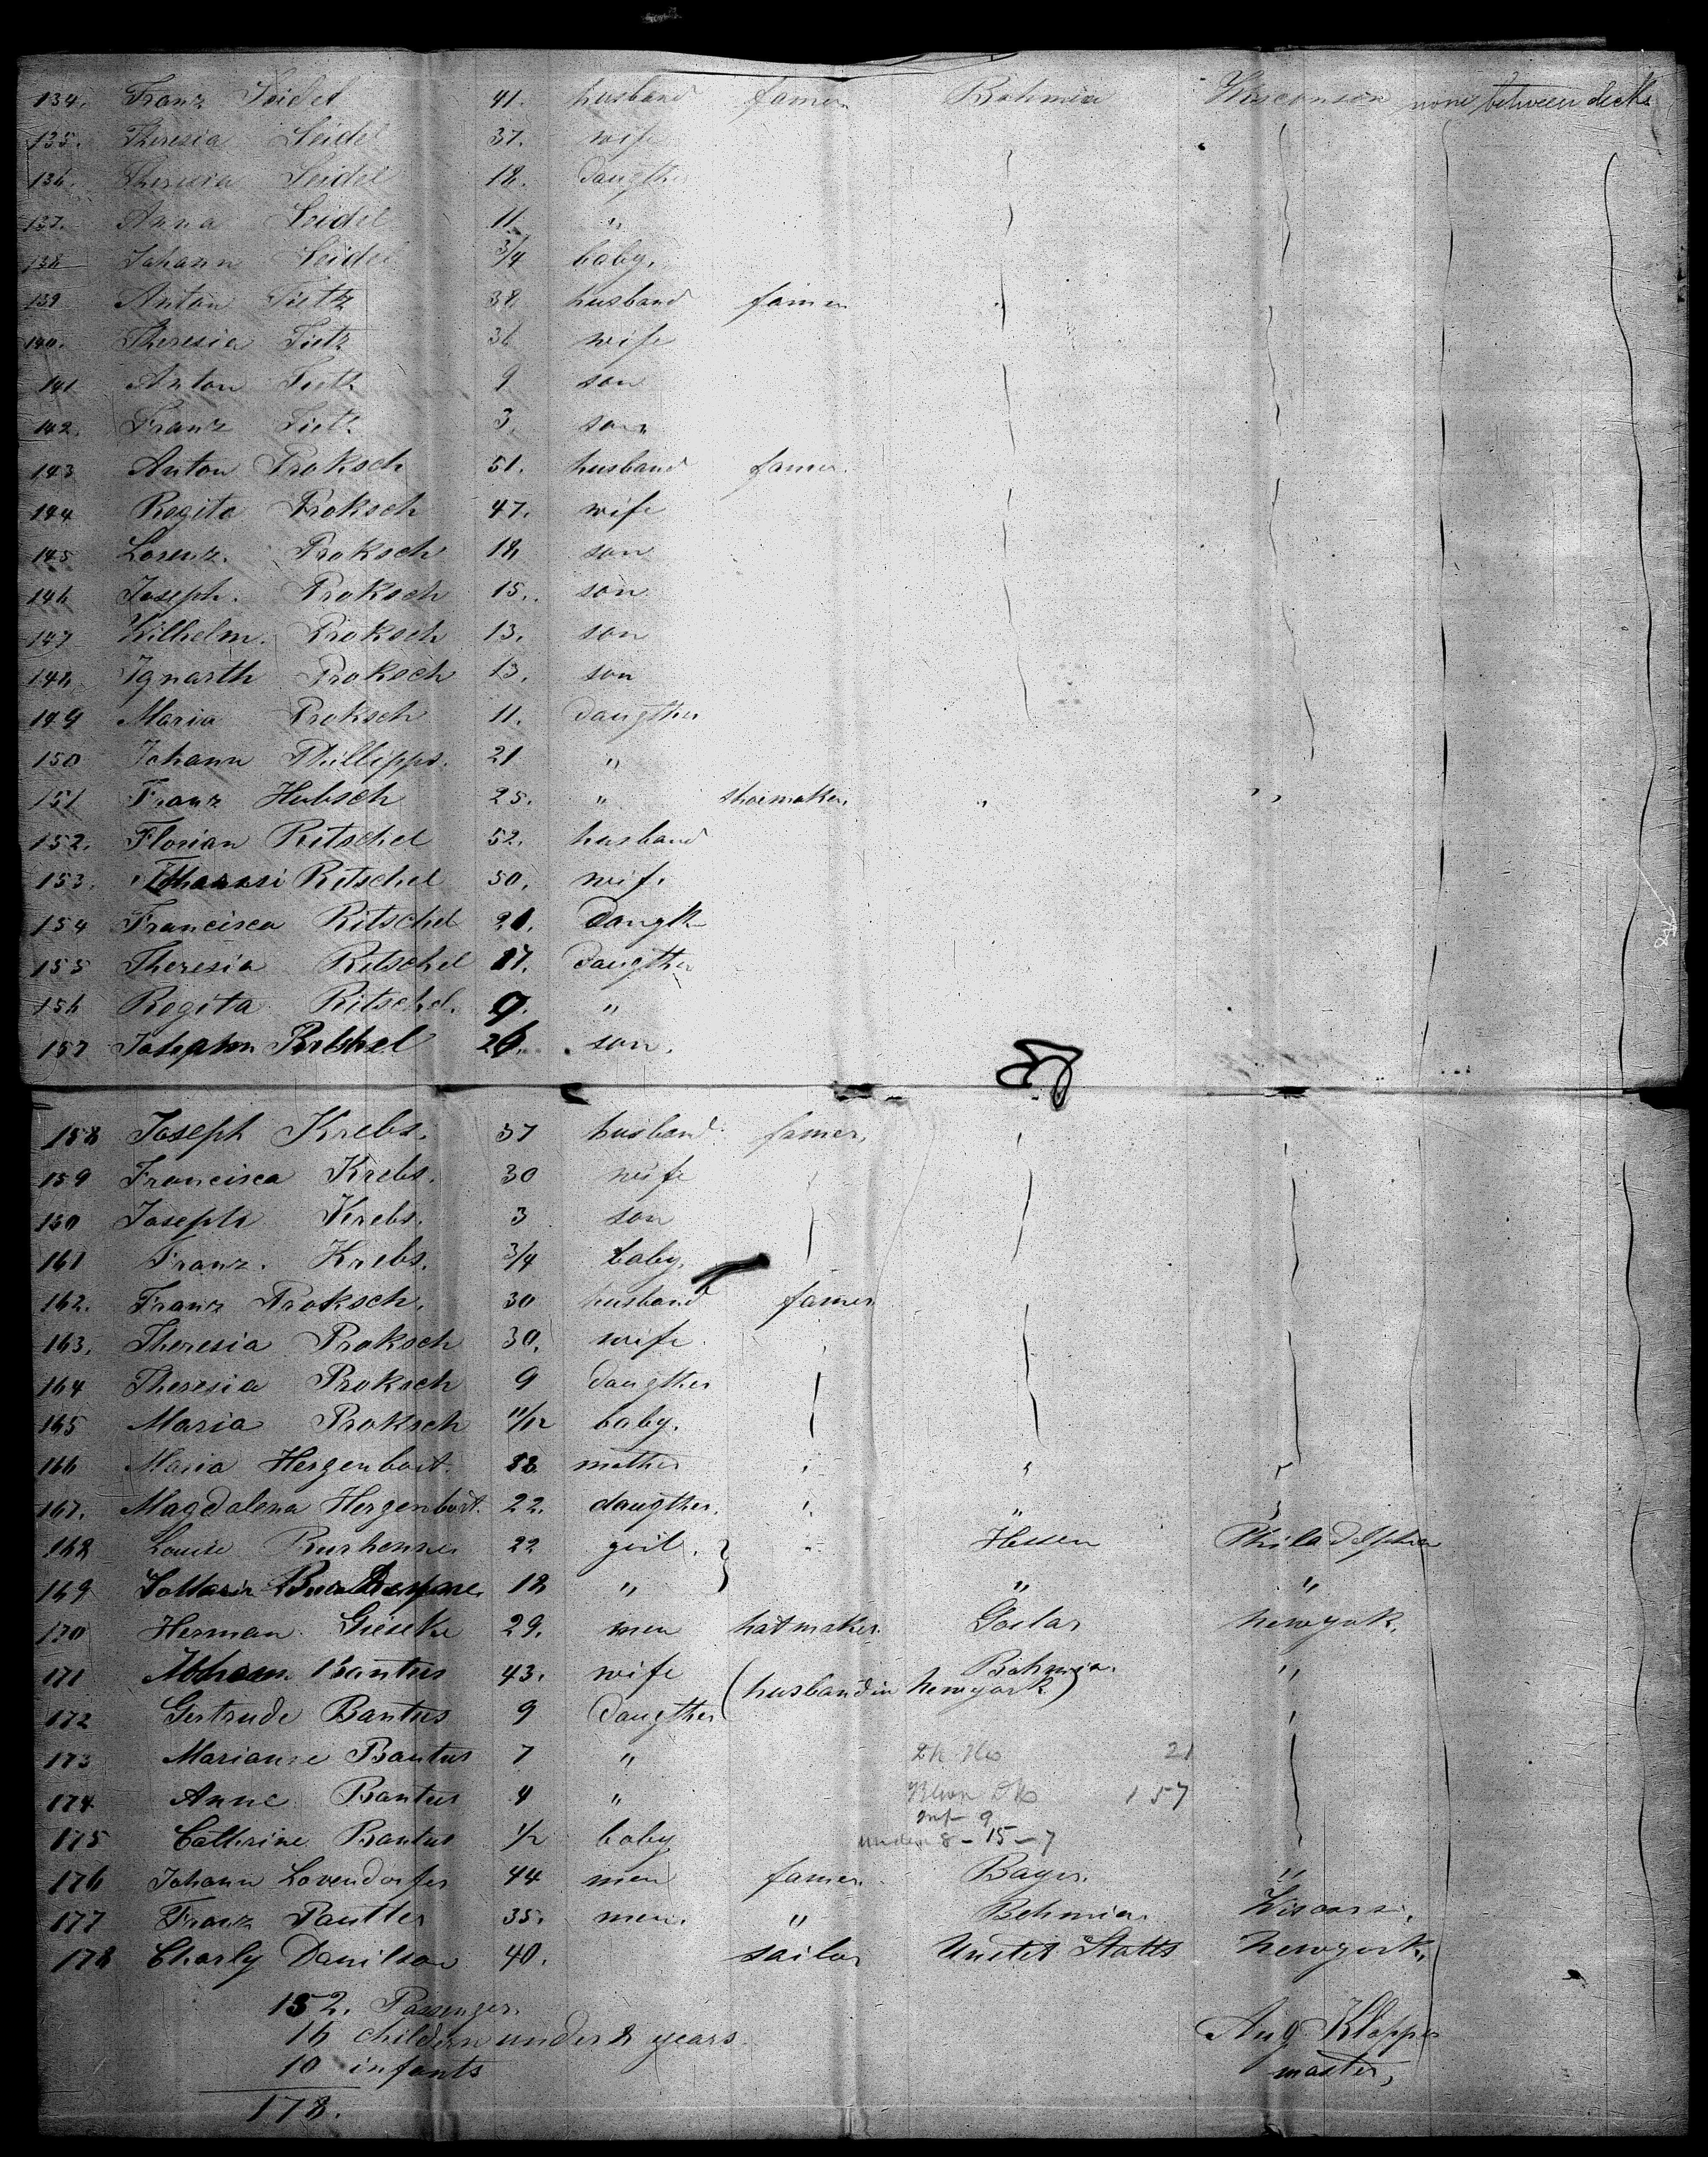 134. Franz Seidel 41. husband famer Bohmia Wisconson none between decks
135. Theresia Seidel 37. wife
136. Theresia Seidel 18. daugther
137. Anna Seidel 11. "
138 Johann Seidel 3/4 baby.
139 Anton Tietz 38. husband famer "
140. Theresia Tietz 36 wife
141 Anton Tietz 9 son
142. Franz Tietz 3. son
143 Anton Proksch 51. husband famer.
144 Regita Proksch 47. wife
145 Lorenz. Proksch 18 son
146 Joseph. Proksch 15. son
147 Wilhelm. Proksch 13. son
148 Ignarth Proksch 13. son
149 Maria Proksch 11. daugther
150 Johann Phillipps. 21 "
151 Franz Hubsch 25. " shoemaker " "
152. Florian Ritschel 52. husband
153. Ritschel 50. wife
154 Francisca Ritschel 21. daugth
155 Theresia Ritschel 17. daugther
156 Regita Ritschel. 9. "
157 Ritschel 26. son.
158 Joseph Krebs. 37 husband famer,
159 Francisca Krebs. 30 wife
160 Joseph Krebs. 3 son
161 Franz. Krebs. 3/4 baby.
162. Franz Proksch. 30 husband famer
163. Theresia Proksch 30. wife
164 Theresia Proksch 9 daugther
165 Maria Proksch 11/12 baby.
166 Maria Hergenbort. mother "
167. Magdalena Hergenbort. 22. daugther. "
168 Louise 22 girl. Hessen Philadelphia
169 18 " " "
170 Herman. Gieseke 29. men hatmaker. Goslar newyork.
171 Bantus 43. wife Bohmia. "
(husband in newyork)
172 Gertrude Bantus 9 daugther
173 Marianne Bantus 7 " 21
174 Anne Bantus 4 " 157
inf 9
175 Cathrine Bantus 1/2 baby under 8 - 15 - 7
176 Johann Lovendorfer 44 men famer. Bayer. "
177 Franz Pautler 35. men. " Behmia Wisconsi.
178 Charly Danilson 40. sailor Unitet Statts newyork.
152. Passenger.
16 childern under 8 years.
10 infants
178.
Aug Klopper
master,